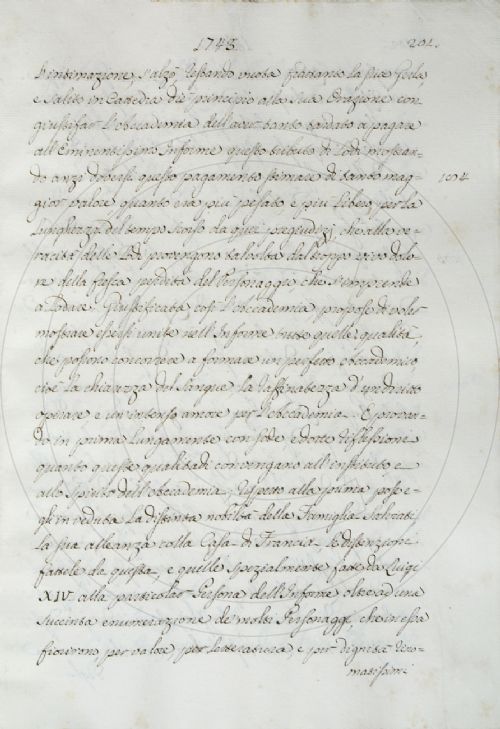 1748. 201.
L'intimazione, s'alzò, restando vuota frattanto la sua sedia,
e salito in Cattedra diè principio alla sua Orazione con
giustificar l'Accademia dell'aver tanto tardato a pagare
all'Eminentissimo Informe questo tributo di Lodi mostran-
do anzi doversi questo pagamento stimare di tanto mag- 104
gior valore quanto era più pesato, e più libero per la
Lunghezza del tempo scorso da quei pregiudizj che alla ve-
racità delle Lodi provengono talvolta dal troppo vivo dolo-
re della fresca perdita del Personaggio, che s'imprende
a Lodare. Giustificata così l'Accademia propose di voler
mostrare essersi unite nell'Informe tutte quelle qualità,
che possono concorrere a formare un perfetto Accademico,
cioè la chiarezza del Sangue, la raffinatezza d'un diritto
operare, e un intenso amore per l'Accademia. E provan-
do in prima lungamente con sode, e dotte riflessioni
quanto queste qualitadi convengano all'instituto e
allo spirito dell'Accademia, rispetto alla prima pose e-
gli in veduta la distinta nobiltà della Famiglia Salviati
la sua alleanza colla Casa di Francia le distinzioni
fattele da questa, e quelle spezialmente fatte da Luigi
XIV alla particolar Persona dell'Informe oltre ad una
succinta enumerazione de molti Personaggi, che in essa
fiorirono per valore, per letteratura, e per dignità Pro-
matissimi